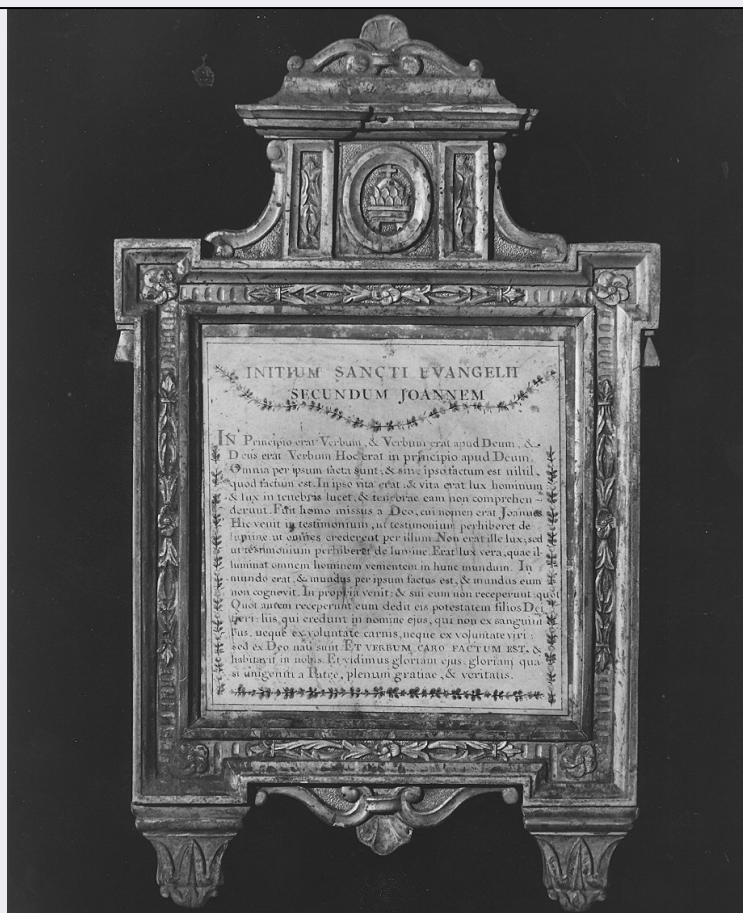 INITIUM SANCTI EVANGELII
SECUNDUM JOANNEM
IN Principio erat Verbum, & Verbum erat apud Deum, &
Deus erat Verbum Hoc erat in principio apud Deum.
Omnia per ipsum facta sunt, & sine ipso factum est nihil,
quod factum est. In ipso vita erat, & vita erat lux hominum
& lux in tenebris lucet, & tenebrae eam non comprehen-
derunt. Fuit homo missus a Deo, cui nomen erat Joannes
Hic venit in testimonium, ut testimonium perhiberet de
lumine, ut omnes crederent per illum. Non erat ille lux, sed
ut testimonium perhiberet de lumine. Erat lux vera, quae il-
luminat omnem hominem venientem in hunc mundum. In
mundo erat, & mundus per ipsum factus est, & mundus eum
non cognovit. In propria venit, & sui eum non receperunt quot
Quot autem receperunt eum dedit eis potestatem filios Dei
fieri: his, qui credunt in nomine ejus, qui non ex sanguini
bus, neque ex voluntate carnis, neque ex voluntate viri;
sed ex Deo nati sunt. ET VERBUM CARO FACTUM EST, &
habitavit in nobis. Et vidimus gloriam ejus, gloriam qua
si unigeniti a Patre, plenum gratiae, & veritatis.